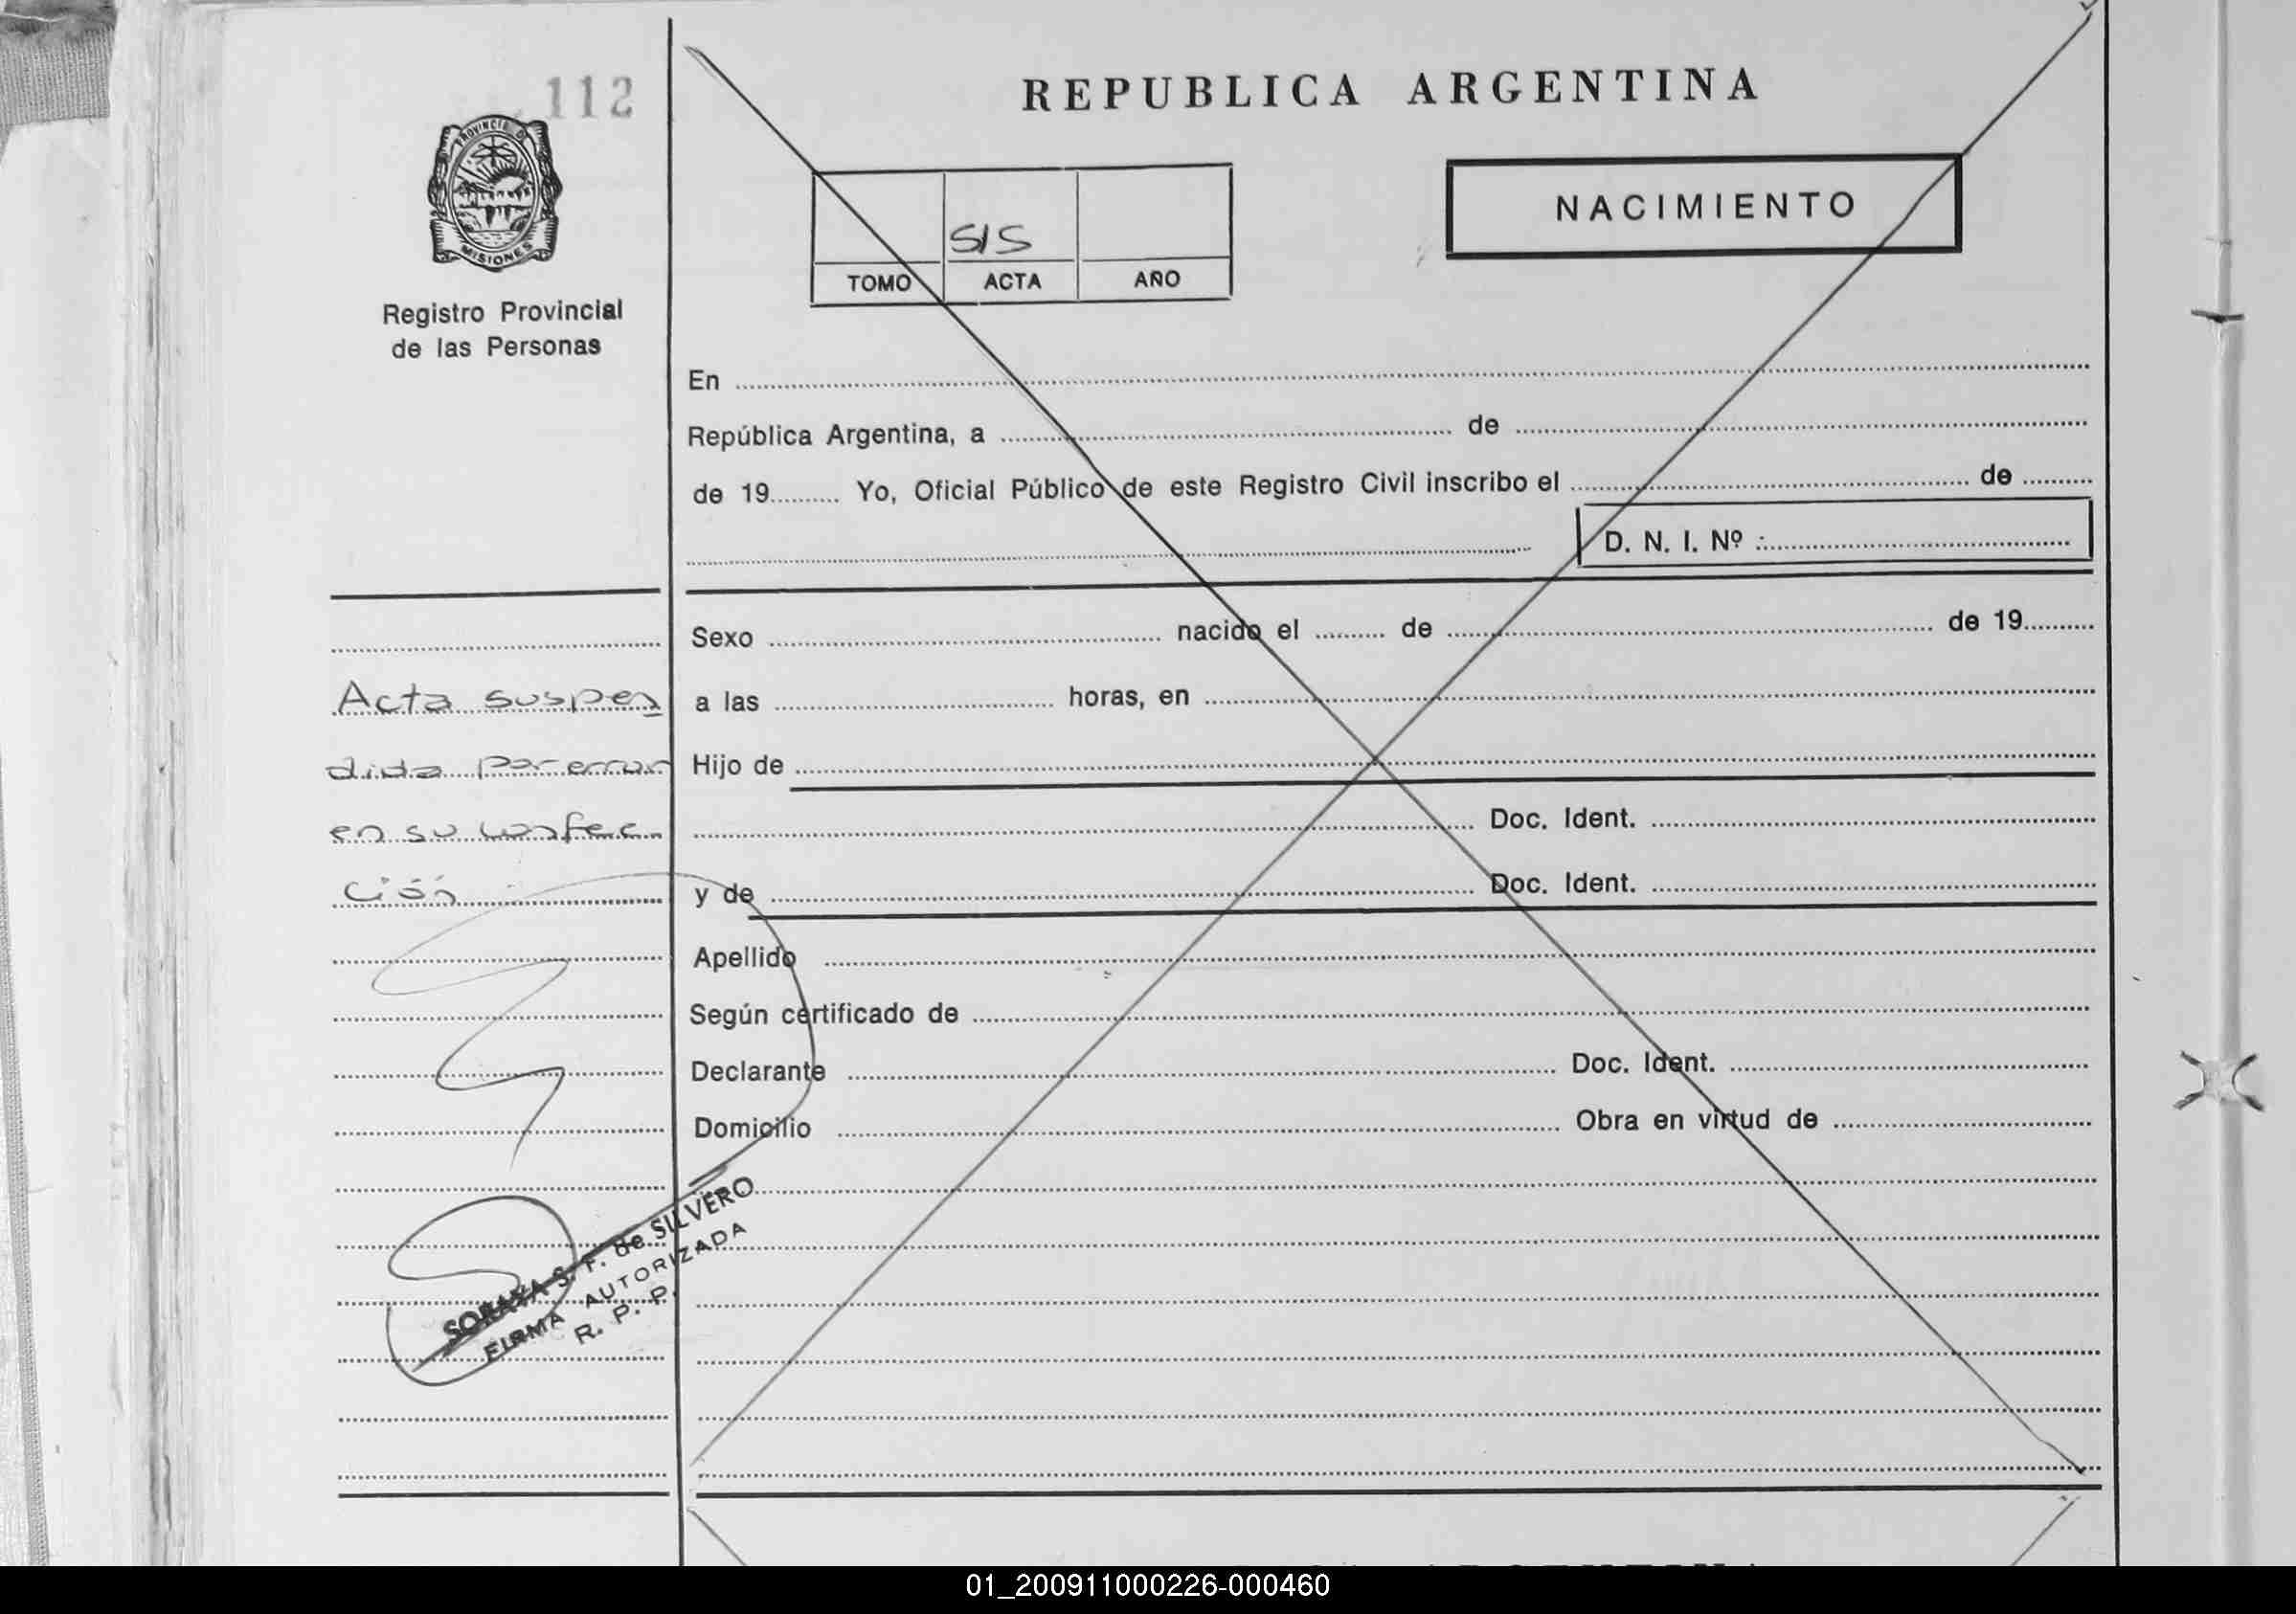 112
PROVINCIA D
MISIONES
Registro Provincial
de las Personas
REPUBLICA ARGENTINA
NACIMIENTO
515
TOMO ACTA AÑO
En
República Argentina, a de
de 19 Yo, Oficial Público de este Registro Civil inscribo el de
D. N. I. Nº :
Sexo nacido el de de 19
a las horas, en
Hijo de
Doc. Ident.
y de Doc. Ident.
Apellido
Según certificado de
Declarante Doc. Ident.
Domicilio Obra en virtud de
Acta suspen
dida por error
en su confec
ción
SORAYA S. F. de SILVERO
FIRMA AUTORIZADA
R. P. P.
01_200911000226-000460